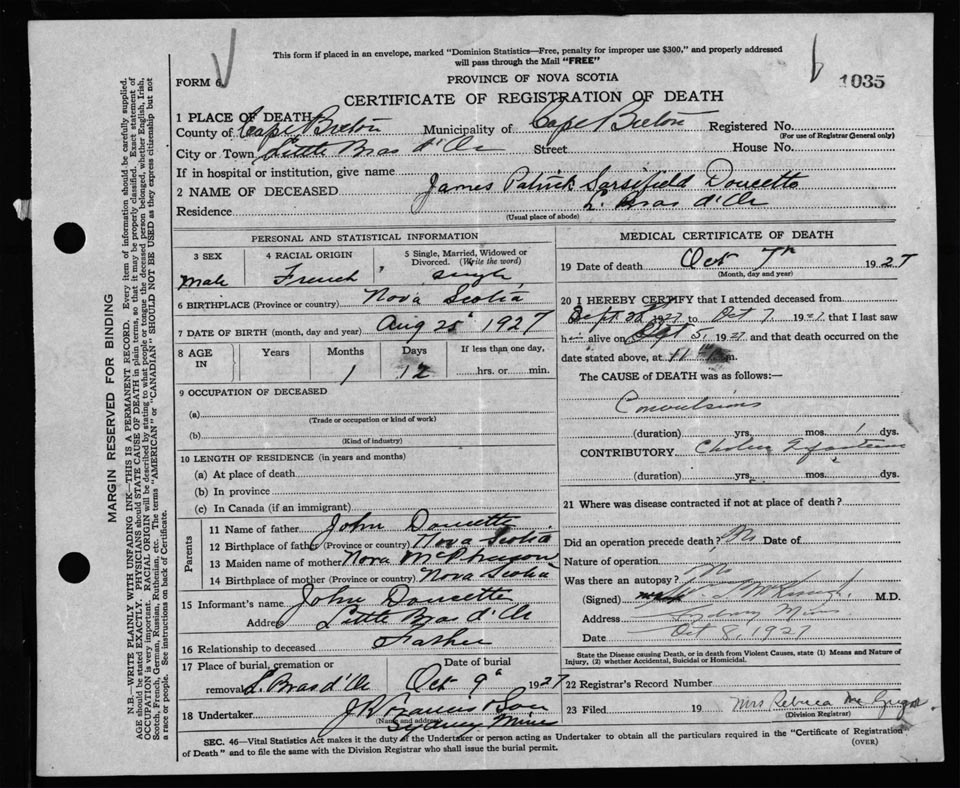 This form if placed in an envelope, marked "Dominion Statistics—Free, penalty for improper use $300," and properly addressed
will pass through the Mail "FREE"
FORM 6
PROVINCE OF NOVA SCOTIA
1035
CERTIFICATE OF REGISTRATION OF DEATH
1 PLACE OF DEATH
County of Cape Breton Municipality of Cape Breton Registered No.
(For use of Registrar General only)
City or Town Little Bras d'Or Street House No.
If in hospital or institution, give name
2 NAME OF DECEASED James Patrick Sarsifield Doucette
Residence L. Bras d'Or
(Usual place of abode)
PERSONAL AND STATISTICAL INFORMATION
3 SEX 4 RACIAL ORIGIN 5 Single, Married, Widowed or Divorced. (Write the word)
Male French Single
6 BIRTHPLACE (Province or country) Nova Scotia
7 DATE OF BIRTH (month, day and year) Aug 25 1927
8 AGE IN Years Months Days If less than one day,
1 12 hrs. or min.
9 OCCUPATION OF DECEASED
(a)
(Trade or occupation or kind of work)
(b)
(Kind of industry)
10 LENGTH OF RESIDENCE (in years and months)
(a) At place of death
(b) In province
(c) In Canada (if an immigrant)
Parents
11 Name of father John Doucette
12 Birthplace of father (Province or country) Nova Scotia
13 Maiden name of mother Nora
14 Birthplace of mother (Province or country) Nova Scotia
15 Informant's name John Doucette
Address Little Bras d'Or
16 Relationship to deceased Father
17 Place of burial, cremation or Date of burial
removal L. Bras d'Or Oct 9 1927
18 Undertaker J R Francis & Son
(Name and address)
Sydney Mines
MEDICAL CERTIFICATE OF DEATH
19 Date of death Oct 7th 1927
(Month, day and year)
20 I HEREBY CERTIFY that I attended deceased from
Sept. 1927 to Oct 7 1927 that I last saw
h alive on Oct 5, 1927 and that death occurred on the
date stated above, at 11 m.
The CAUSE of DEATH was as follows:—
Convulsions
(duration) yrs. mos. 1 dys.
CONTRIBUTORY Cholera Infanteum
(duration) yrs. mos. dys.
21 Where was disease contracted if not at place of death?
Did an operation precede death? No Date of
Nature of operation
Was there an autopsy? No
(Signed) M.D.
Address Sydney Mines
Date Oct 8, 1927
State the Disease causing Death, or in death from Violent Causes, state (1) Means and Nature of
Injury, (2) whether Accidental, Suicidal or Homicidal.
22 Registrar's Record Number
23 Filed 19 Mrs Rebecca
(Division Registrar)
SEC. 46—Vital Statistics Act makes it the duty of the Undertaker or person acting as Undertaker to obtain all the particulars required in the "Certificate of Registration
of Death" and to file the same with the Division Registrar who shall issue the burial permit.
(OVER)
MARGIN RESERVED FOR BINDING
N.B.—WRITE PLAINLY WITH UNFADING INK—THIS IS A PERMANENT RECORD. Every item of information should be carefully supplied.
AGE should be stated EXACTLY. PHYSICIANS should STATE CAUSE OF DEATH in plain terms, so that it may be properly classified. Exact statement of
OCCUPATION is very important. RACIAL ORIGIN will be described by stating to what people or tongue the deceased person belonged, whether English, Irish,
Scotch, French, German, Russian, Ruthenian, etc. The terms "AMERICAN" or "CANADIAN" SHOULD NOT BE USED as they express citizenship but not
a race or people. See instructions on back of Certificate.